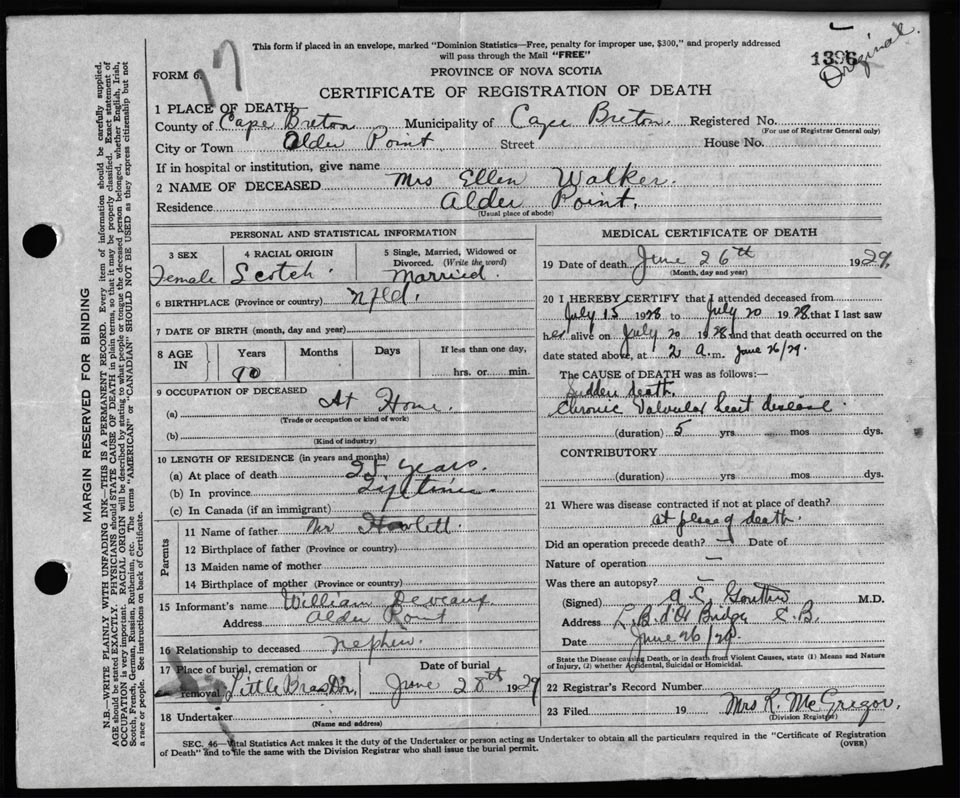 This form if placed in an envelope, marked "Dominion Statistics—Free, penalty for improper use, $300," and properly addressed
will pass through the Mail "FREE"
1396
Original.
17
FORM 6.
PROVINCE OF NOVA SCOTIA
CERTIFICATE OF REGISTRATION OF DEATH
1 PLACE OF DEATH
County of Cape Breton Municipality of Cape Breton. Registered No.
(For use of Registrar General only)
City or Town Alder Point Street House No.
If in hospital or institution, give name
2 NAME OF DECEASED Mrs Ellen Walker.
Residence Alder Point.
(Usual place of abode)
PERSONAL AND STATISTICAL INFORMATION
3 SEX 4 RACIAL ORIGIN 5 Single, Married, Widowed or
Divorced. (Write the word)
Female Scotch. Married.
6 BIRTHPLACE (Province or country) Nfld.
7 DATE OF BIRTH (month, day and year)
8 AGE IN Years Months Days If less than one day,
90 hrs. or min.
9 OCCUPATION OF DECEASED
(a) At Home.
(Trade or occupation or kind of work)
(b)
(Kind of industry)
10 LENGTH OF RESIDENCE (in years and months)
(a) At place of death years.
(b) In province
(c) In Canada (if an immigrant)
Parents
11 Name of father Mr Howlett.
12 Birthplace of father (Province or country)
13 Maiden name of mother
14 Birthplace of mother (Province or country)
15 Informant's name William Deveaux
Address Alder Point
16 Relationship to deceased nephew.
17 Place of burial, cremation or removal Little Bras D'or Date of burial June 28th 1929
18 Undertaker
(Name and address)
MEDICAL CERTIFICATE OF DEATH
19 Date of death June 26th 1929.
(Month, day and year)
20 I HEREBY CERTIFY that I attended deceased from
July 15 1928 to July 20 1928, that I last saw
her alive on July 20 1928 and that death occurred on the
date stated above, at 2 a.m. June 26/29.
The CAUSE of DEATH was as follows:—
Sudden death.
Chronic Valvular heart disease.
(duration) 5 yrs. mos. dys.
CONTRIBUTORY
(duration) yrs. mos. dys.
21 Where was disease contracted if not at place of death?
at place of death.
Did an operation precede death? — Date of
Nature of operation —
Was there an autopsy? —
(Signed) M.D.
Address Bridge C.B.
Date June 26/29.
State the Disease causing Death, or in death from Violent Causes, state (1) Means and Nature
of Injury, (2) whether Accidental, Suicidal or Homicidal.
22 Registrar's Record Number
23 Filed 19 Mrs R. McGregor.
(Division Registrar)
SEC. 46—Vital Statistics Act makes it the duty of the Undertaker or person acting as Undertaker to obtain all the particulars required in the "Certificate of Registration
of Death" and to file the same with the Division Registrar who shall issue the burial permit. (OVER)
MARGIN RESERVED FOR BINDING
N.B.—WRITE PLAINLY WITH UNFADING INK—THIS IS A PERMANENT RECORD. Every item of information should be carefully supplied.
AGE should be stated EXACTLY. PHYSICIANS should STATE CAUSE OF DEATH in plain terms, so that it may be properly classified. Exact statement of
OCCUPATION is very important. RACIAL ORIGIN will be described by stating to what people or tongue the deceased person belonged, whether English, Irish,
Scotch, French, German, Russian, Ruthenian, etc. The terms "AMERICAN" or "CANADIAN" SHOULD NOT BE USED as they express citizenship but not
a race or people. See instructions on back of Certificate.